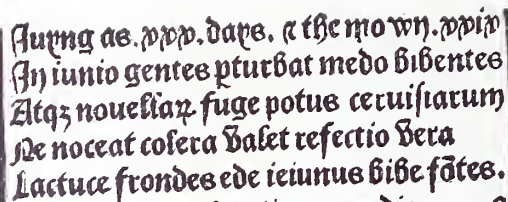 Iuyng as .xxx. dayes. ⁊ the mown. xxix
In iunio gentes ꝑturbat medo bibentes
Atqꝫ nouellaꝝ fuge potus ceruisiarum
Ne noceat colera valet refectio vera
Lactuce frondes ede ieiunus bibe fōtes.